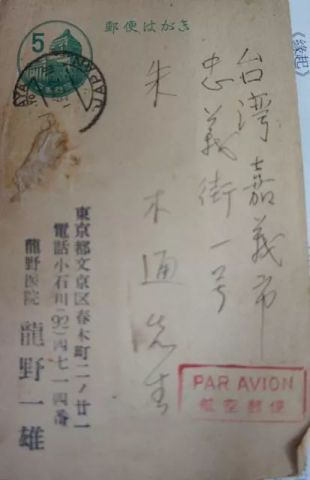 郵便はがき
5
台湾嘉義市
忠義街一号
朱木通先生
PAR AVION
航空郵便
東京都文京区春木町二ノ廿一
電話小石川(92)四七一四番
龍野医院 龍野一雄
《緣起》